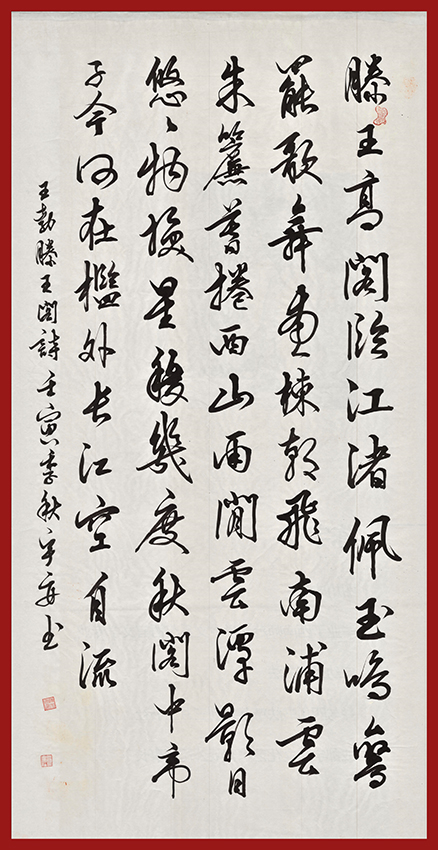 滕王高閣臨江渚佩玉鳴鸞
罷歌舞畫棟朝飛南浦雲
朱簾暮捲西山雨閒雲潭影日
悠悠物換星移幾度秋閣中帝
子今何在檻外長江空自流
王勃滕王閣詩壬寅季秋平安书